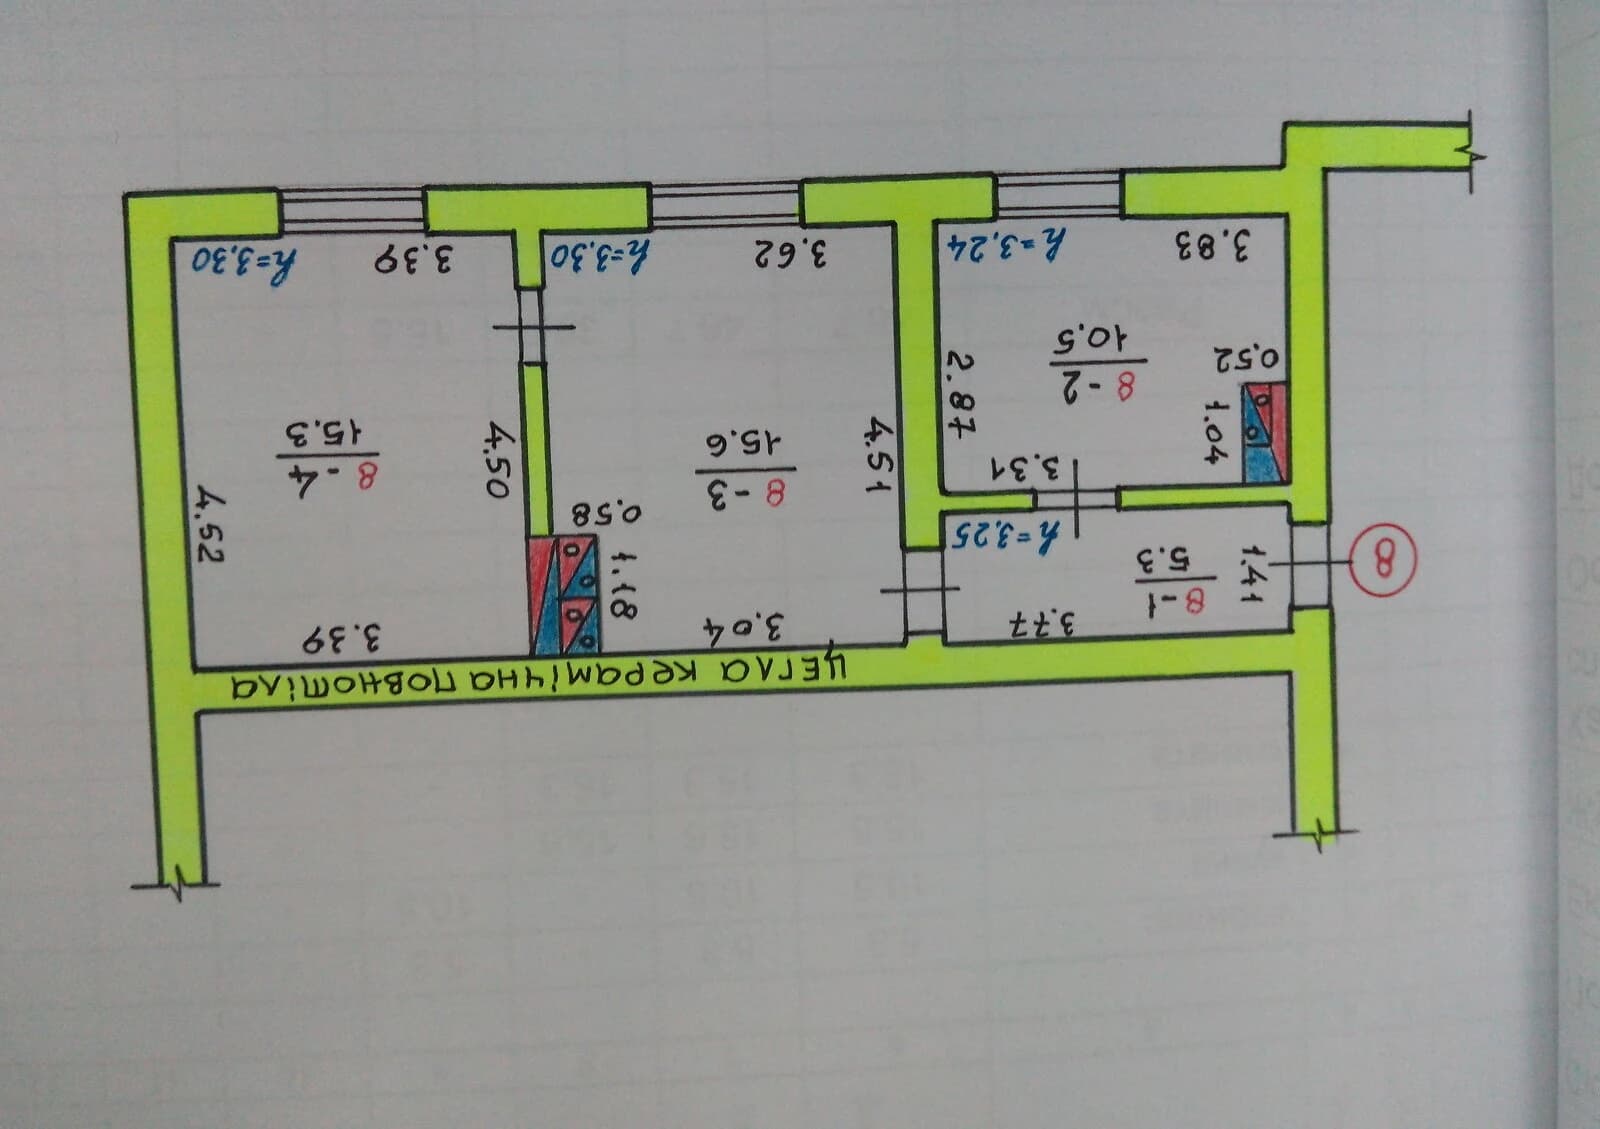 ЦЕГЛА КЕРАМіЧНА ПОВНОТіЛА
8
3.77
8-1
5.3
1.41
h=3.25
3.31
1.04
0.52
8-2
10.5
2.87
3.83
h=3.24
3.04
1.18
0.58
8-3
15.6
4.51
3.62
h=3.30
3.39
4.52
4.50
8-4
15.3
3.39
h=3.30